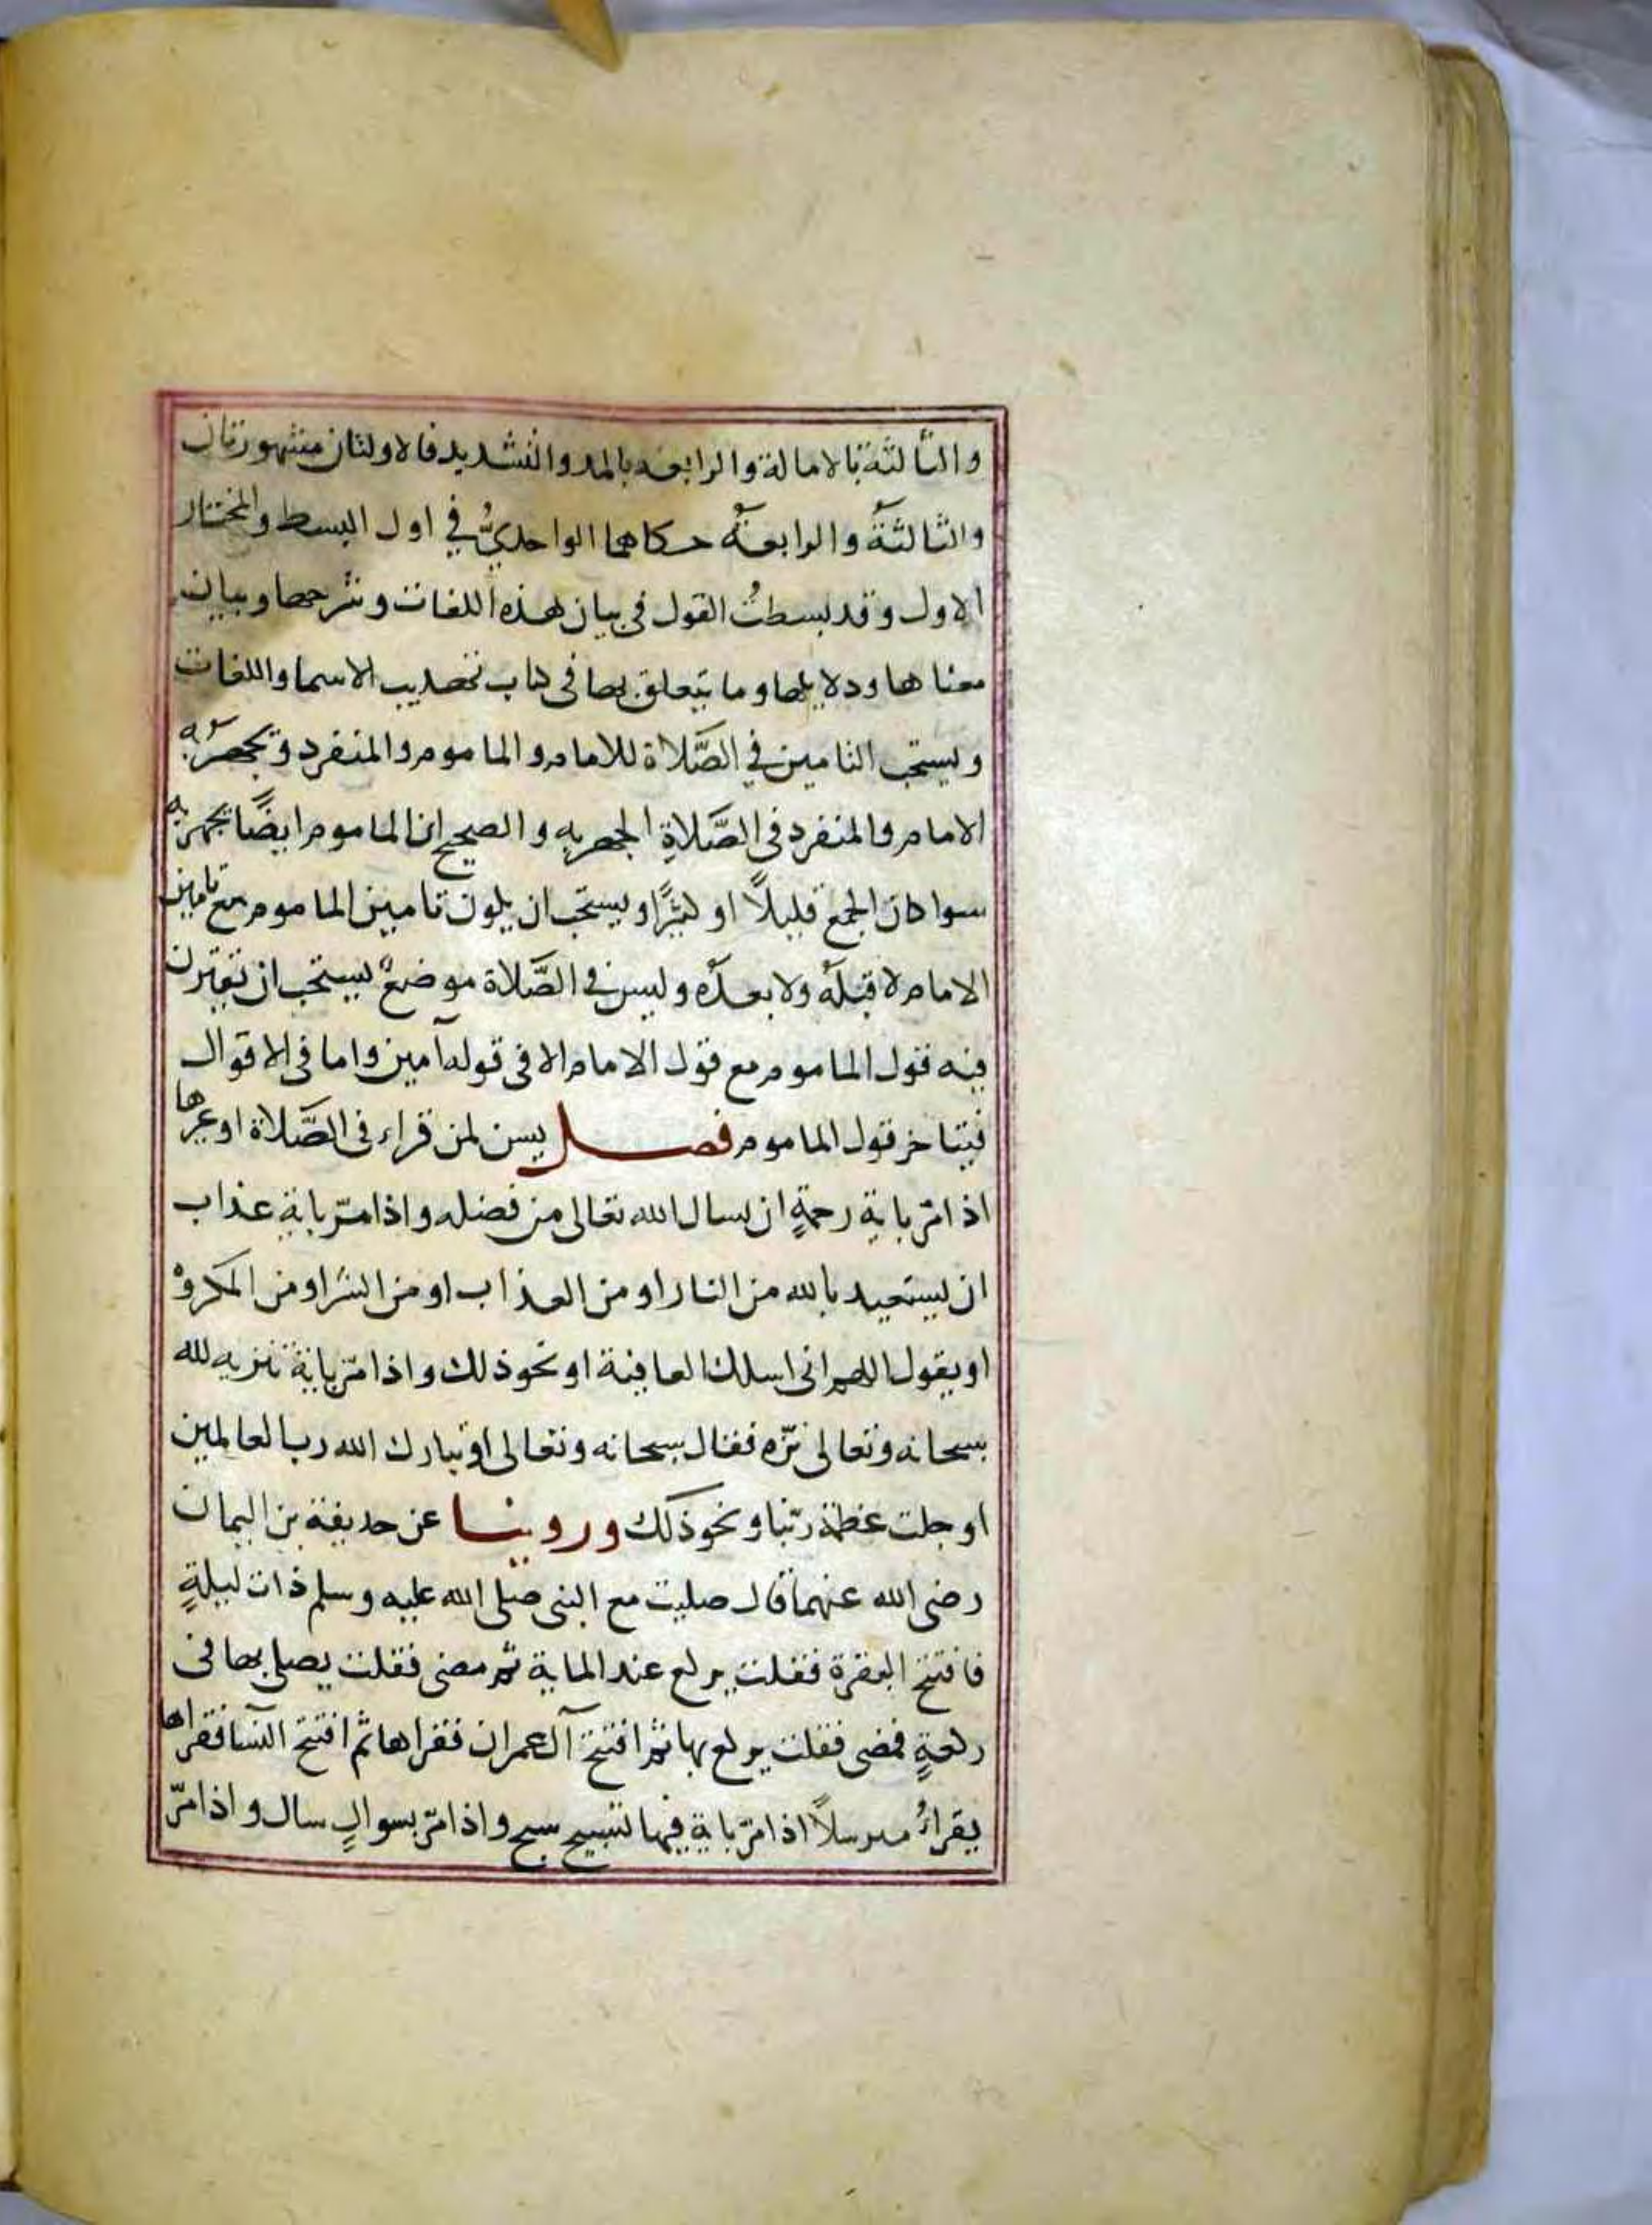 والثالثة بالامالة والرابعه بالمد والتشديد فالاولتان مشهورتان
والثالثةُ والرابعةُ حكاهما الواحديُّ في اول البسط والمختار
الاول وقد بسطتُ القول في بيان هذه اللغات وشرحها وبيان
معناها ودلايلها وما يتعلق بها في كتاب تهذيب الاسما واللغات
ويستحب التامين في الصَّلاة للامام والماموم والمنفرد ويجهرُ به
الامام والمنفرد في الصَّلاةِ الجهريه والصحيح ان الماموم ايضًا يجهر به
سوا كان الجمع قليلاً او كثيرًا ويستحب ان يكون تامين الماموم مع تامين
الامام لا قبلَهُ ولا بعدَه وليس في الصَّلاة موضعٌ يستحب ان تقترن
فيه قول الماموم مع قول الامام الا في قوله آمين واما في الاقوال
فيتاخر قول الماموم فصل يسن لمن قراء في الصَّلاة او غيرها
اذا مرّ باية رحمةٍ ان يسال الله تعالى من فضله واذا مرّ باية عذاب
ان يستعيد بالله من النار او من العذاب او من الشرّ او من المكروه
او يقول اللهم اني اسلك العافية او نحو ذلك واذا مرّ باية تنزيه لله
سبحانه وتعالى نزّه فقال سبحانه وتعالى او تبارك الله رب العالمين
او جلت عظمة ربّنا ونحو ذلك وروينا عن حديفة بن اليمان
رضى الله عنهما قال صليت مع النبي صلى الله عليه وسلم ذات ليلةٍ
فافتتح البقرة فقلت يركع عند الماية ثم مضى فقلت يصلي بها في
ركعةٍ فمضى فقلت يركع بها ثم افتتح آل عمران فقراها ثم افتتح النسا فقراها
يقراءُ مرسلاً اذا مرّ باية فيها تسبيح سبح واذا مرّ بسوالٍ سال واذا مرّ